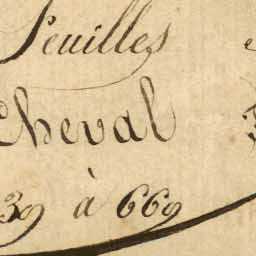 Feuilles
Cheval
39 à 669